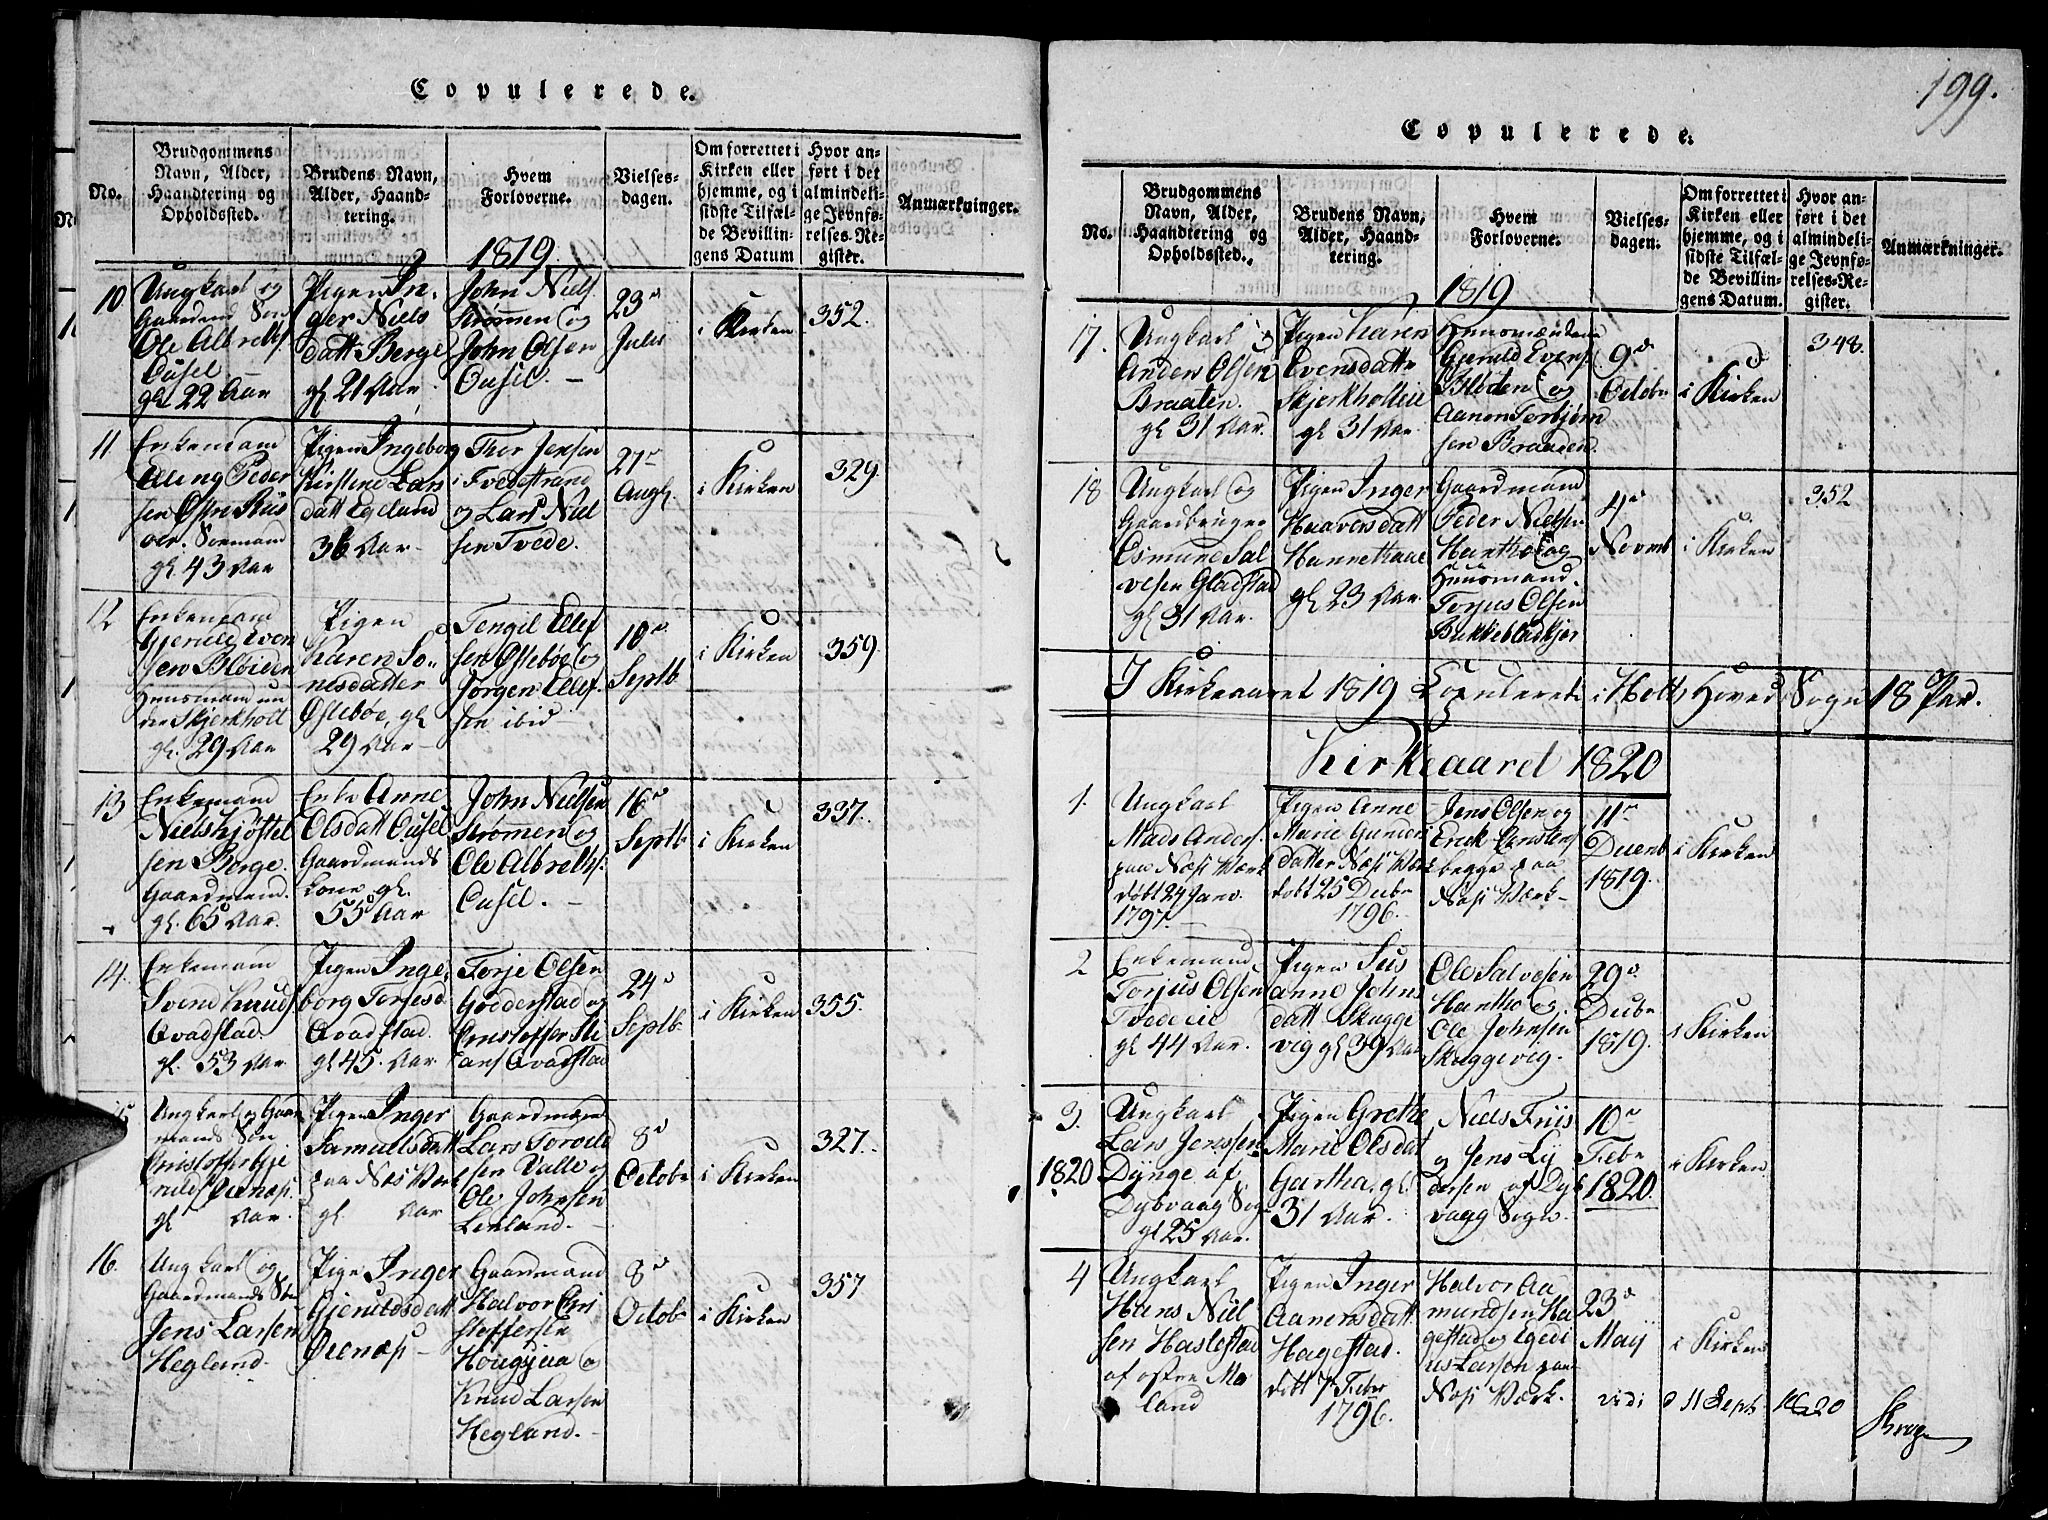 Copulerede.
No.
Brudgommens Navn, Alder, Haandtering og Opholdssted.
Brudens Navn, Alder, Haandtering.
Hvem Forloverne.
Vielsesdagen.
Om forrettet i Kirken eller hjemme, og i sidste Tilfælde Bevillingens Datum
Hvor anført i det almindelige Jevnførelses-Register.
Anmærkninger.
1819
10
Ungkarl og
Gaardens Søn
Ole Albretts.
Ousel
gl. 22 Aar
Pigen In-
ger Niels
datt Berge
gl 21 Aar
John Niels.
Strømmen og
John Olsen
Ousel.
23de
Julii
i Kirken
352.
11
Enkemann
Peder
sen Østre Riis
øer. Sømand
gl. 43 Aar
Pigen Ingeborg
Kirstine Lars
datt Egeland
36 Aar
Thor Jensen
i Tvedestrand
og Lars Niel
sen Tvede.
27de
Augl.
i Kirken
329.
12
Enkemann
Gjeruld Even
sen
Huusmann un
der Skjerkholt
gl. 29 Aar
Pigen
Karen Jo-
nesdatter
Østebøe, gl
29 Aar
Tengil Ellef
sen Østebøe og
Jørgen Ellef.
sen ibid
10de
Septb.
i Kirken
359.
13
Enkemand
Niels Kjøstel
sen Berge.
Gaardmand.
gl. 65 Aar.
Enke Anne
Olsdatt Ousel
Gaardmands
kone gl.
55 Aar
John Nielsen
Strømmen og
Ole Albretts.
Ousel.
16de
Septb.
i Kirken
337.
14.
Enkemann
Svend Knuds.
Qvadstad.
gl. 53 Aar
Pigen Inge
borg Terjesd.
Qvadstad.
gl 45. Aar
Torje Olsen
Godderstad og
Christoffer
Qvadstad
24de
Septb.
i Kirken
355.
15
Ungkarl og Gaard
mands Søn
Christoffer Gje
rulds Ørenæs.
gl Aar.
Pigen Inger
Samuelsdatt
paa Næs Værk
gl. Aar
Gaardmand
Lars Torvild
sen Valle og
Ole Johnsen
Lenland.
8de
Octobr
i Kirken
327.
16.
Ungkarl og
Gaardmands Søn
Jens Larsen
Hegland.
Pige Inger
Gjeruldsdatt
Ørenæs
Gaardmand
Halvor Chri
stoffersen
Hougjaa og
Knud Larsen
Hegland.
8de
Octobr
i Kirken
357
199.
Copulerede.
No.
Brudgommens Navn, Alder, Haandtering og Opholdssted.
Brudens Navn, Alder, Haandtering.
Hvem Forloverne.
Vielsesdagen.
Om forrettet i Kirken eller hjemme, og i sidste Tilfælde Bevillingens Datum.
Hvor anført i det almindelige Jevnførelses-Register.
Anmærkninger.
1819
17.
Ungkarl
Anders Olsen
Braaten.
gl 31 Aar.
Pigen Karen
Evensdatt
Skjerkholteie
gl 31 Aar.
Huusmændene
Gjeruld Evens.
og
Aanon Torbjørn
sen Braaden.
9de
Octobr
i Kirken
348.
18
Ungkarl og
Gaardbruger
Osmund Sal
vesen Gladstad
gl. 31 Aar.
Pigen Inger
Haavorsdatt
Hannethaae
gl. 23 Aar.
Gaardmand
Peder Nielsen
Hantho og
Huusmand.
Torjus Olsen
Bukkebladkjær
4de
Novmb
i Kirken
352
I Kirkeaaret 1819 Copulerede i Holts Hoved Sogn 18 Par.
Kirkeaaret 1820
1.
Ungkarl
Mads Anders.
paa Næs Værk
døbt 24 Janv.
1797.
Pigen Anne
Marie Gunders
datter Næs Værk
døbt 25 Decbr
1796.
Jens Olsen og
Erick Carstens.
begge paa
Næs Værk
11te
Decemb
1819.
i Kirken
2
Enkemand
Torjus Olsen
Tvede eie
gl 44 Aar.
Pigen Sus
anne Johns
datt Skugge
vig gl 39 Aar
Ole Salvesen
Hantho og
Ole Johnsen
Skuggevig.
29de
Decbr
1819.
i Kirken
3.
1820
Ungkarl
Lars Jenssen
Dynge af
Dybvaag Sogn
gl 25 Aar.
Pigen Grethe
Marie Olsdat
Gartha, gl.
31 Aar.
Niels Friis
og Jens
af Dyb
vaag Sogn.
10de
Febr
1820.
i Kirken
4
Ungkarl
Hans Niel
sen Haslestad
af østre Mo
land
Pigen Inger
Aanensdatt
Hagestad.
døbt 7de Febr
1796.
Halvor Aa
mundsen Ha
gestad og Egedi
us Larsen paa
Næs Værk.
23de
Maij
i Kirken
vidi d 11 Septb 1820
Krog